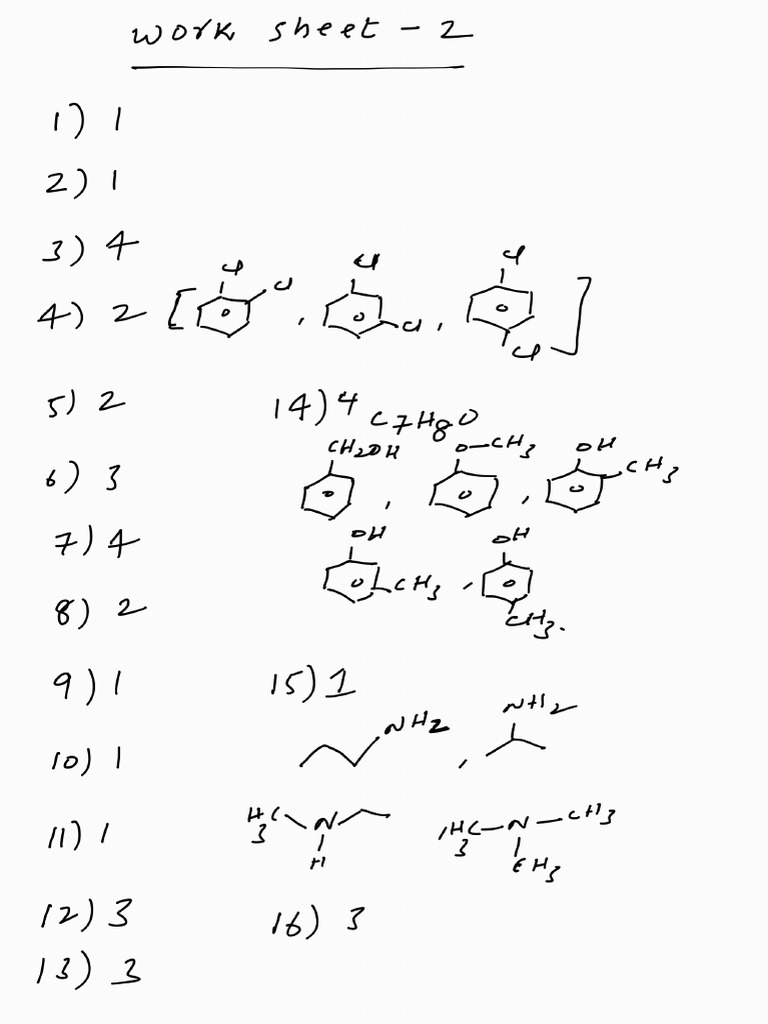 Work sheet - 2
1) 1
2) 1
3) 4
4) 2 [ Cl Cl , Cl Cl , Cl Cl ]
5) 2
6) 3
7) 4
8) 2
9) 1
10) 1
11) 1
12) 3
13) 3
14) 4 C7H8O
CH2OH , O-CH3 , OH CH3
OH CH3 , OH CH3.
15) 1
NH2 , NH2
H3C N H H3C-N-CH3 CH3
16) 3